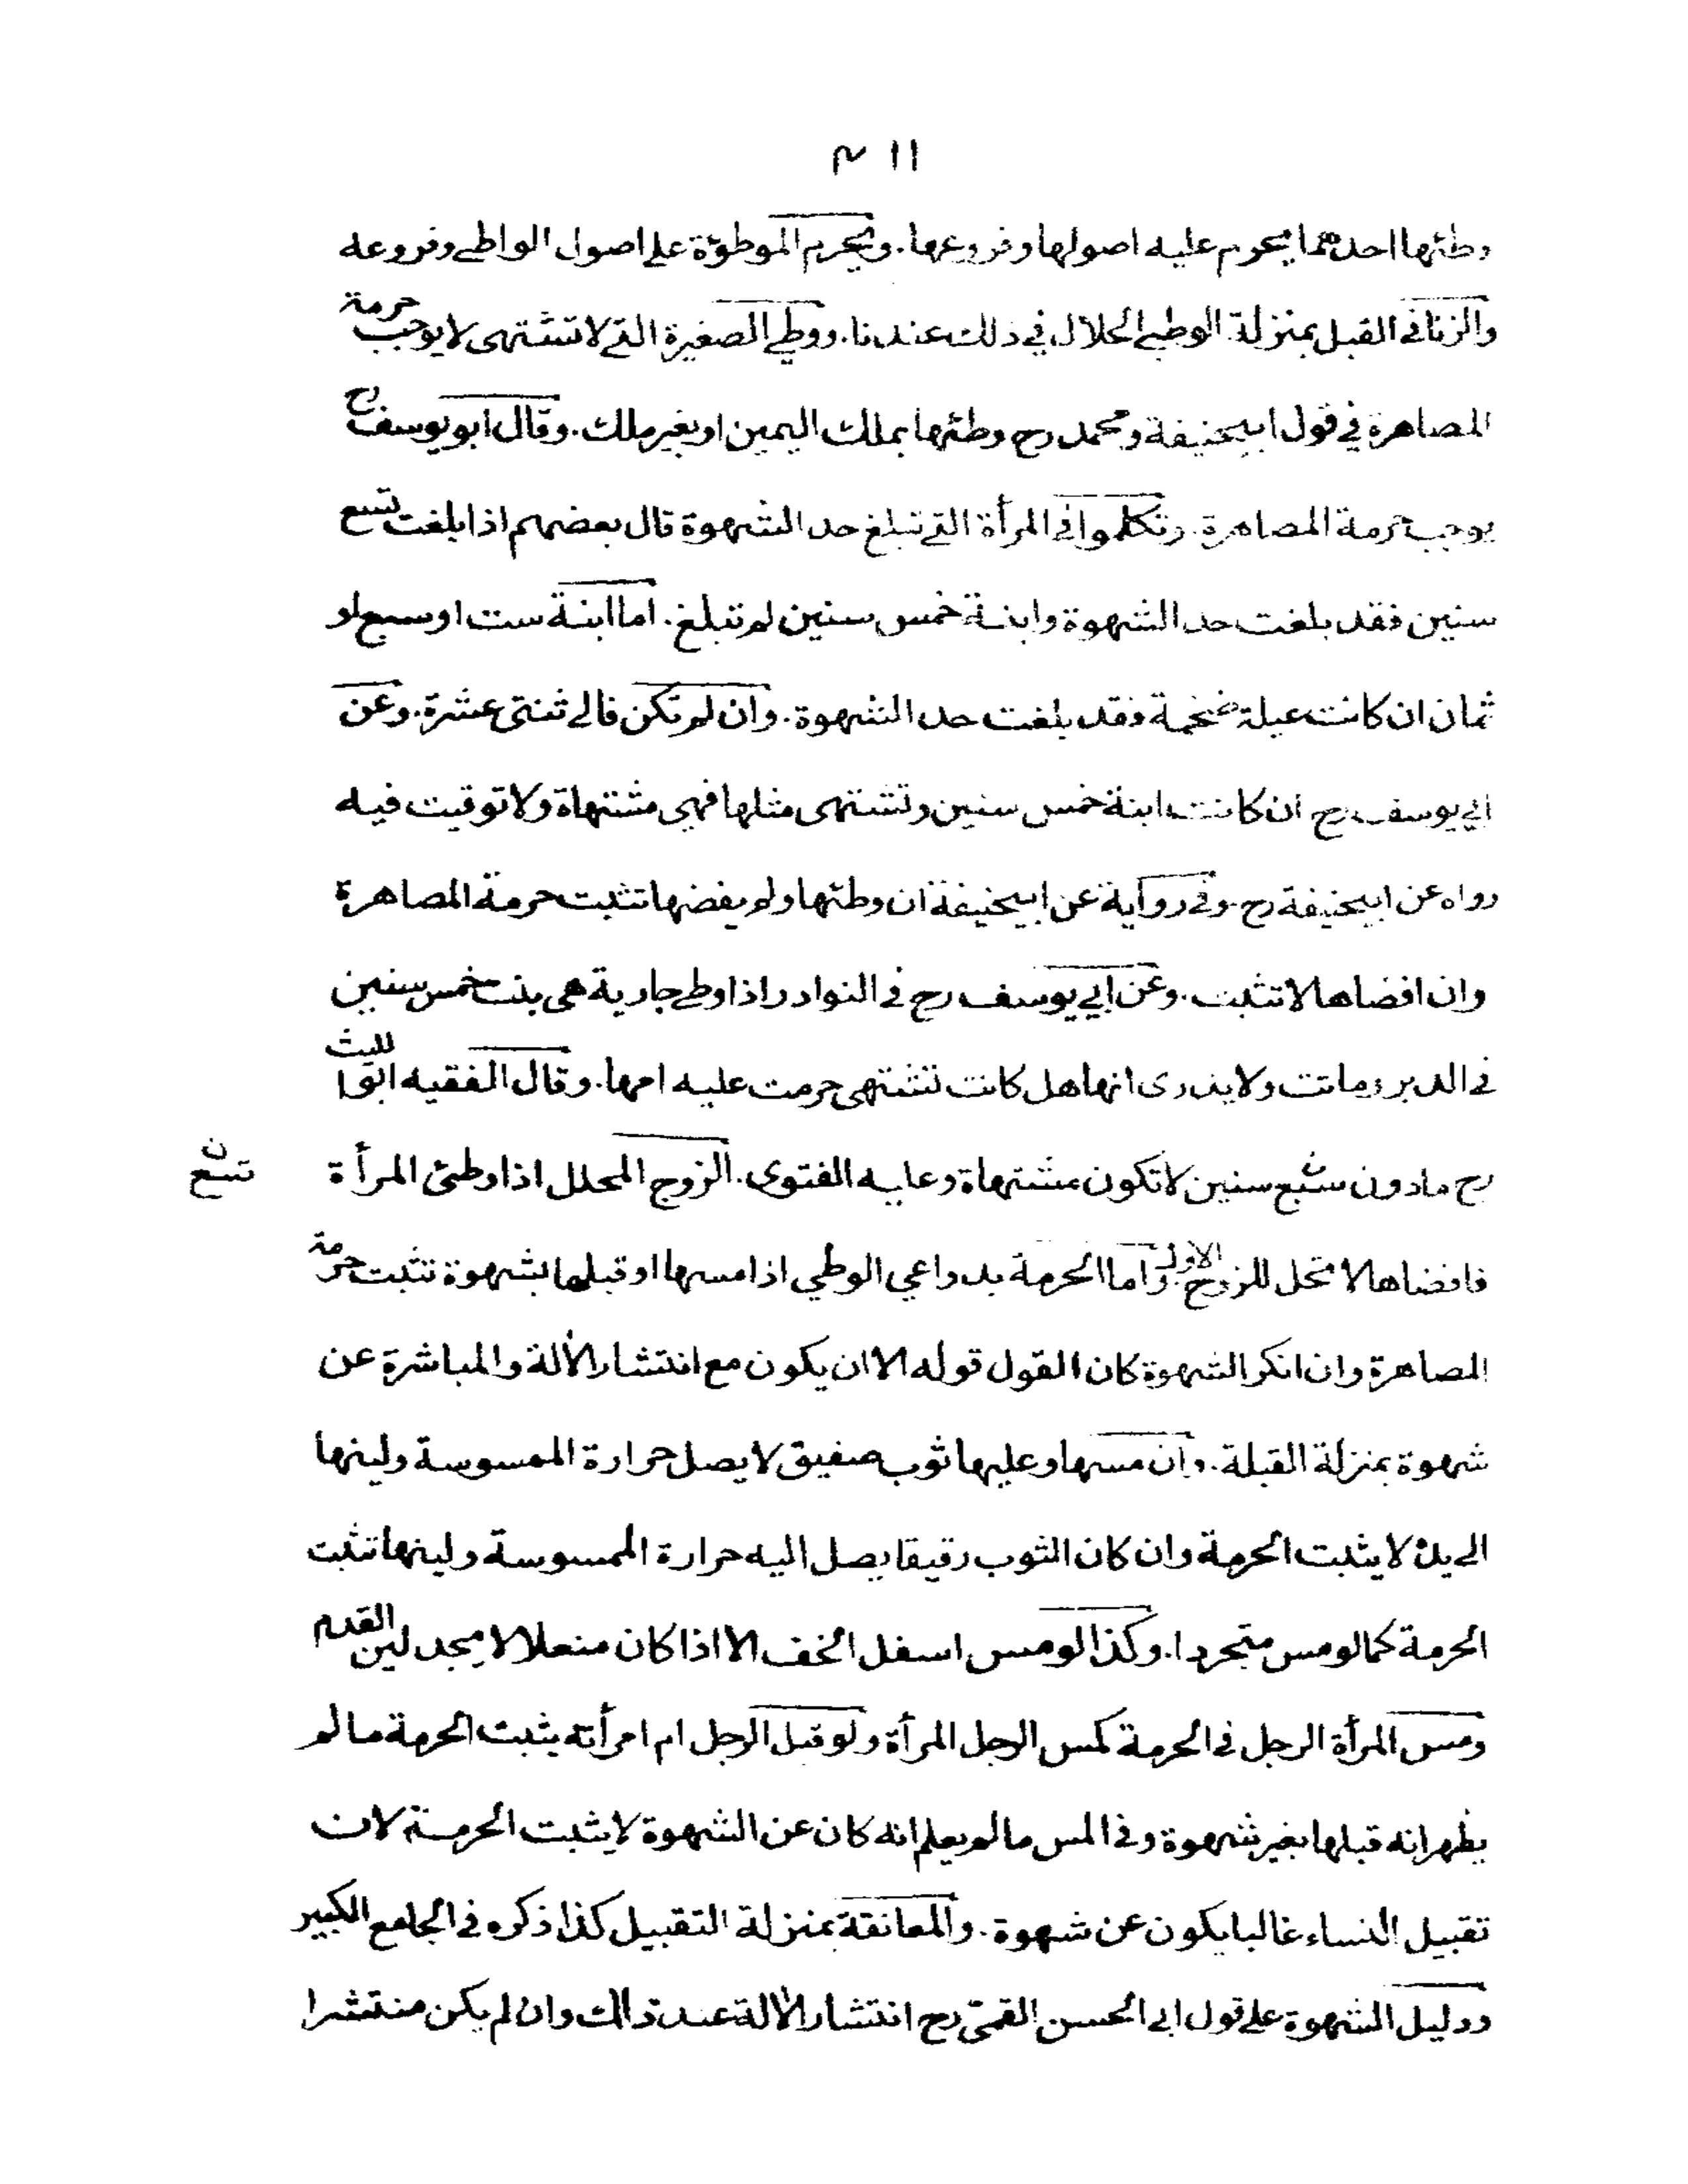 ١١ ٣
وطئها احدهما يحرم عليه اصولها وفروعها. ويحرم الموطوٓة على اصول الواطے وفروعه
والزنا فے القبل بمنزلة الوطے الحلال في ذلك عندنا. ووطے الصغيرة التے لا تشتهى لا يوجب حرمة
المصاهرة في قول ابيحنيفة ومحمد رح وطئها بملك اليمين او بغير ملك. وقال ابو يوسف رح
يوجب حرمة المصاهرة. وتكلموا في المرأة التے تبلغ حد الشهوة قال بعضهم اذا بلغت تسع
سنين فقد بلغت حد الشهوة وابنة خمس سنين لم تبلغ. اما ابنة ست او سبع او
ثمان ان كانت عبلة ضخمة فقد بلغت حد الشهوة. وان لم تكن فالے ثنتى عشرة. وعن
ابي يوسف رح ان كانت ابنة خمس سنين وتشتهى مثلها فهى مشتهاة ولا توقيت فيه
رواه عن ابيحنيفة رح. وفے رواية عن ابيحنيفة ان وطئها ولم يفضها تثبت حرمة المصاهرة
وان افضاها لا تثبت. وعن ابي يوسف رح فے النوادر اذا وطے جارية هى بنت خمس سنين
فے الدبر وماتت ولا يدرى انها هل كانت تشتهى حرمت عليه امها. وقال الفقيه ابو الليث
رح ما دون سبع سنين لا تكون مشتهاة وعليه الفتوى. الزوج المحلل اذا وطئ المرأة
ن تسع
فافضاها لا تحل للزوج الاول. واما الحرمة بدواعي الوطي اذا مسها او قبلها بشهوة تثبت حرمة
المصاهرة وان انكر الشهوة كان القول قوله الا ان يكون مع انتشار الآلة والمباشرة عن
شهوة بمنزلة القبلة. وان مسها وعليها ثوب صفيق لا يصل حرارة الممسوسة ولينها
الے يده لا يثبت الحرمة وان كان الثوب رقيقا يصل اليه حرارة الممسوسة ولينها تثبت
الحرمة كما لو مس متجردا. وكذا لو مس اسفل الخف الا اذا كان منعلا لا يجد لين القدم
ومس المرأة الرجل فے الحرمة كمس الرجل المرأة ولو قبل الرجل ام امرأته يثبت الحرمة ما لم
يظهر انه قبلها بغير شهوة وفے المس ما لم يعلم انه كان عن الشهوة لا يثبت الحرمة لان
تقبيل النساء غالبا يكون عن شهوة. والمعانقة بمنزلة التقبيل كذا ذكره فے الجامع الكبير
ودليل الشهوة على قول ابے الحسن القمّى رح انتشار الآلة عند ذالك وان لم يكن منتشرا